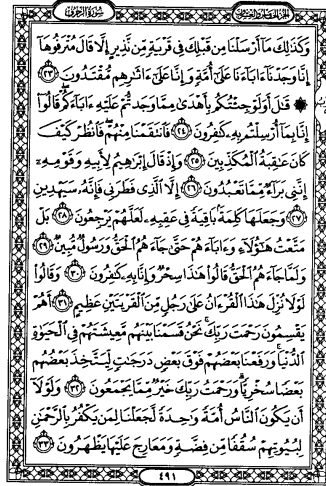 الجزء الخامس والعشرون
سورة الزخرف
وَكَذَٰلِكَ مَآ أَرْسَلْنَا مِن قَبْلِكَ فِى قَرْيَةٍ مِّن نَّذِيرٍ إِلَّا قَالَ مُتْرَفُوهَآ
إِنَّا وَجَدْنَآ ءَابَآءَنَا عَلَىٰٓ أُمَّةٍ وَإِنَّا عَلَىٰٓ ءَاثَٰرِهِم مُّقْتَدُونَ ٢٣
۞ قَٰلَ أَوَلَوْ جِئْتُكُم بِأَهْدَىٰ مِمَّا وَجَدتُّمْ عَلَيْهِ ءَابَآءَكُمْ قَالُوٓا۟
إِنَّا بِمَآ أُرْسِلْتُم بِهِۦ كَٰفِرُونَ ٢٤ فَٱنتَقَمْنَا مِنْهُمْ فَٱنظُرْ كَيْفَ
كَانَ عَٰقِبَةُ ٱلْمُكَذِّبِينَ ٢٥ وَإِذْ قَالَ إِبْرَٰهِيمُ لِأَبِيهِ وَقَوْمِهِۦٓ
إِنَّنِى بَرَآءٌ مِّمَّا تَعْبُدُونَ ٢٦ إِلَّا ٱلَّذِى فَطَرَنِى فَإِنَّهُۥ سَيَهْدِينِ
٢٧ وَجَعَلَهَا كَلِمَةًۢ بَاقِيَةً فِى عَقِبِهِۦ لَعَلَّهُمْ يَرْجِعُونَ ٢٨ بَلْ
مَتَّعْتُ هَٰٓؤُلَآءِ وَءَابَآءَهُمْ حَتَّىٰ جَآءَهُمُ ٱلْحَقُّ وَرَسُولٌ مُّبِينٌ ٢٩
وَلَمَّا جَآءَهُمُ ٱلْحَقُّ قَالُوا۟ هَٰذَا سِحْرٌ وَإِنَّا بِهِۦ كَٰفِرُونَ ٣٠ وَقَالُوا۟
لَوْلَا نُزِّلَ هَٰذَا ٱلْقُرْءَانُ عَلَىٰ رَجُلٍ مِّنَ ٱلْقَرْيَتَيْنِ عَظِيمٍ ٣١ أَهُمْ
يَقْسِمُونَ رَحْمَتَ رَبِّكَ نَحْنُ قَسَمْنَا بَيْنَهُم مَّعِيشَتَهُمْ فِى ٱلْحَيَوٰةِ
ٱلدُّنْيَا وَرَفَعْنَا بَعْضَهُمْ فَوْقَ بَعْضٍ دَرَجَٰتٍ لِّيَتَّخِذَ بَعْضُهُم
بَعْضًا سُخْرِيًّا وَرَحْمَتُ رَبِّكَ خَيْرٌ مِّمَّا يَجْمَعُونَ ٣٢ وَلَوْلَآ
أَن يَكُونَ ٱلنَّاسُ أُمَّةً وَٰحِدَةً لَّجَعَلْنَا لِمَن يَكْفُرُ بِٱلرَّحْمَٰنِ
لِبُيُوتِهِمْ سُقُفًا مِّن فِضَّةٍ وَمَعَارِجَ عَلَيْهَا يَظْهَرُونَ ٣٣
٤٩١